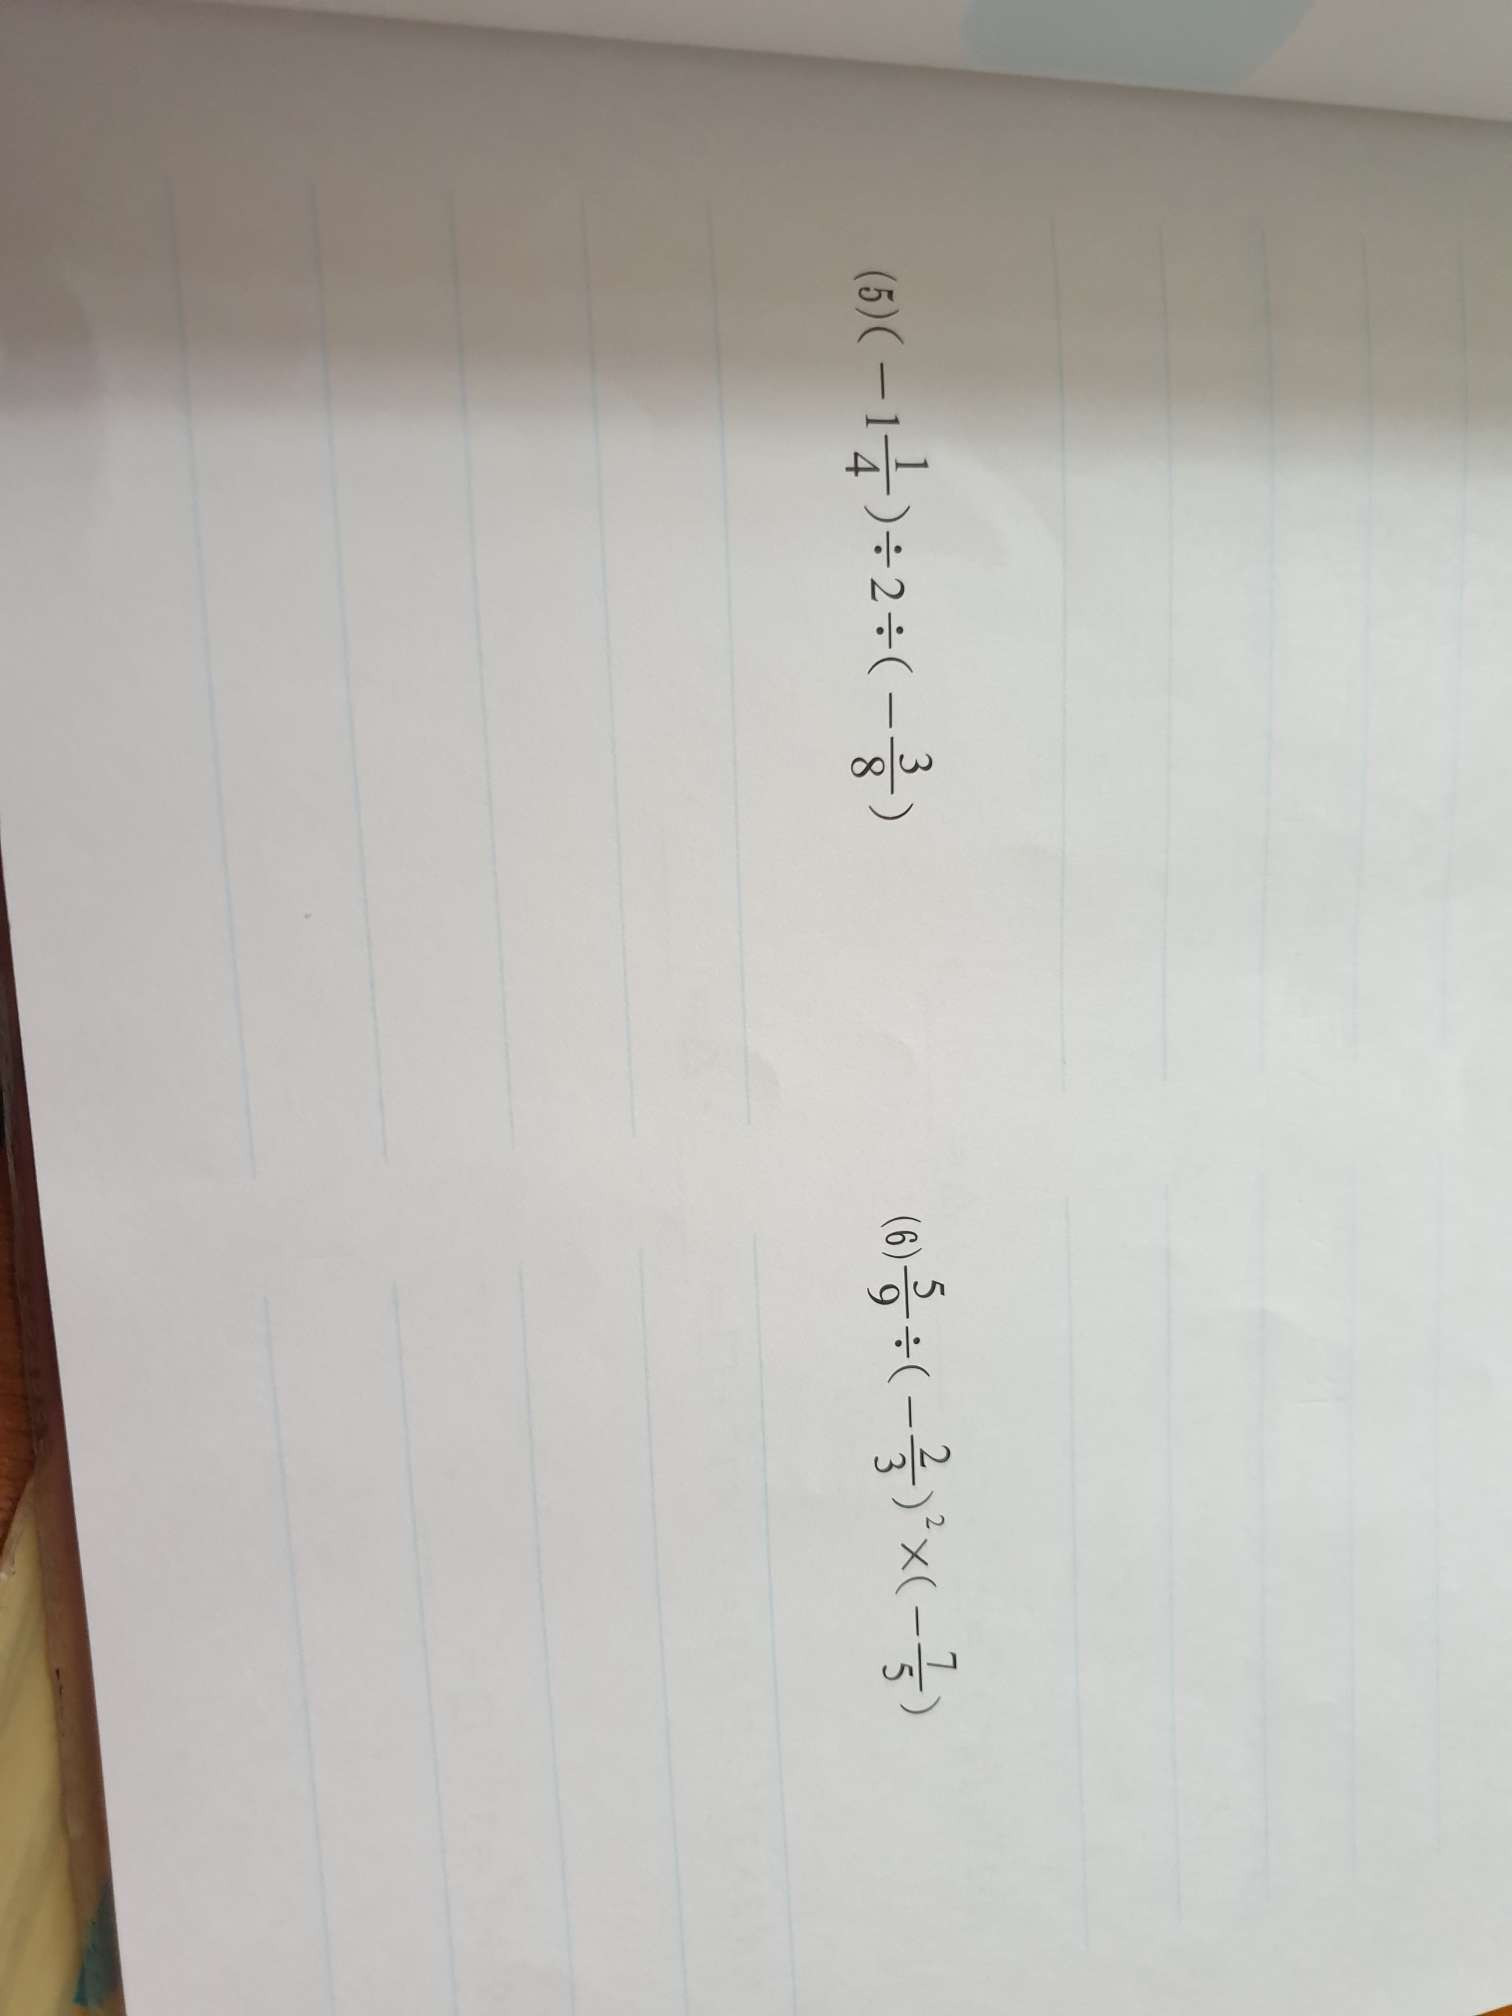 (5)(-1\frac{1}{4})÷2÷(-\frac{3}{8})
(6)\frac{5}{9}÷(-\frac{2}{3})²×(-\frac{7}{5})